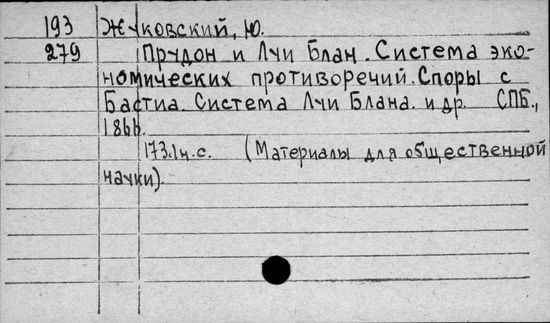 193 Жуковский, Ю.
279 Прудон и Луи Блан. Система эко-
номических противоречий. Споры с
Бастиа. Система Луи Блана. и др. СПБ.,
1866.
173.1н.с. (Материалы для общественной
науки).